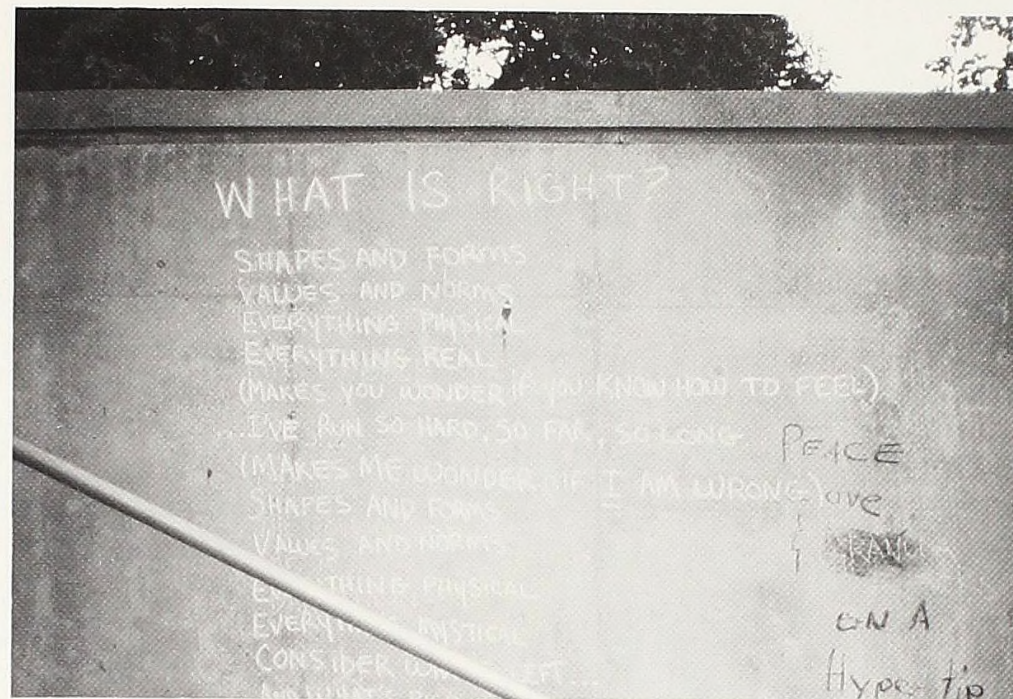 WHAT IS RIGHT?
SHAPES AND FORMS
VALUES AND NORMS
EVERYTHING PHYSICAL
EVERYTHING REAL
(MAKES YOU WONDER IF YOU KNOW HOW TO FEEL)
...I'VE RUN SO HARD, SO FAR, SO LONG
(MAKES ME WONDER IF I AM WRONG)
SHAPES AND FORMS
VALUES AND NORMS
EVERYTHING PHYSICAL
EVERYTHING MYSTICAL
CONSIDER
AND WHAT'S
PEACE
ON A
tip